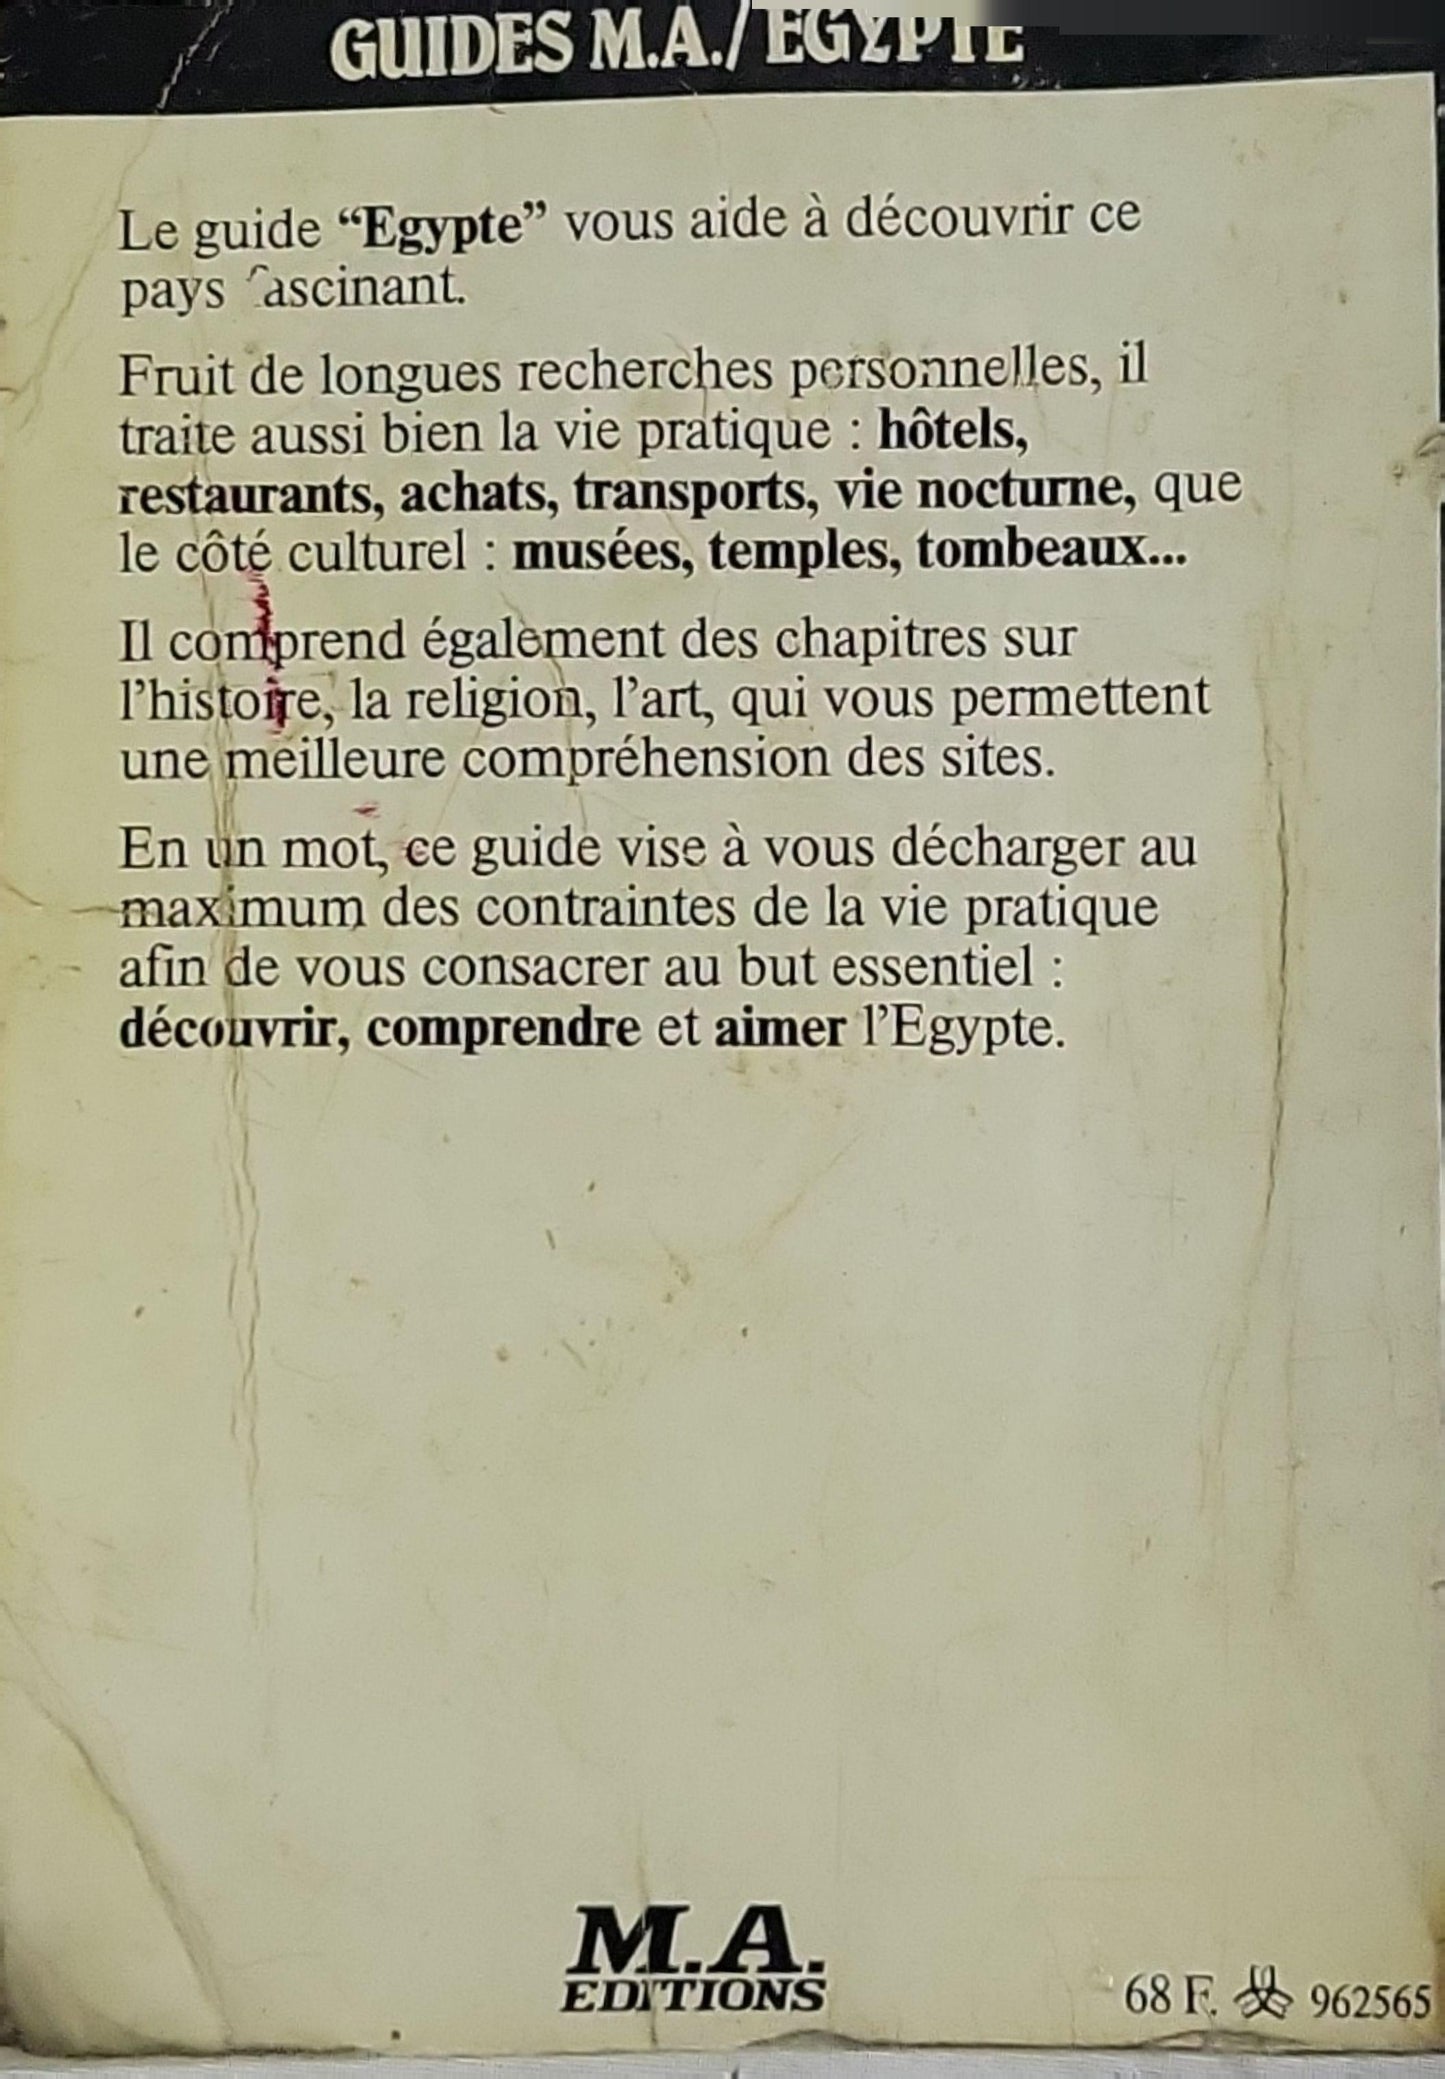 GUIDES M.A./ EGYPTE
Le guide “Egypte” vous aide à découvrir ce
pays fascinant.
Fruit de longues recherches personnelles, il
traite aussi bien la vie pratique : hôtels,
restaurants, achats, transports, vie nocturne, que
le côté culturel : musées, temples, tombeaux...
Il comprend également des chapitres sur
l’histoire, la religion, l’art, qui vous permettent
une meilleure compréhension des sites.
En un mot, ce guide vise à vous décharger au
maximum des contraintes de la vie pratique
afin de vous consacrer au but essentiel :
découvrir, comprendre et aimer l’Egypte.
M.A.
EDITIONS
68 F. 962565